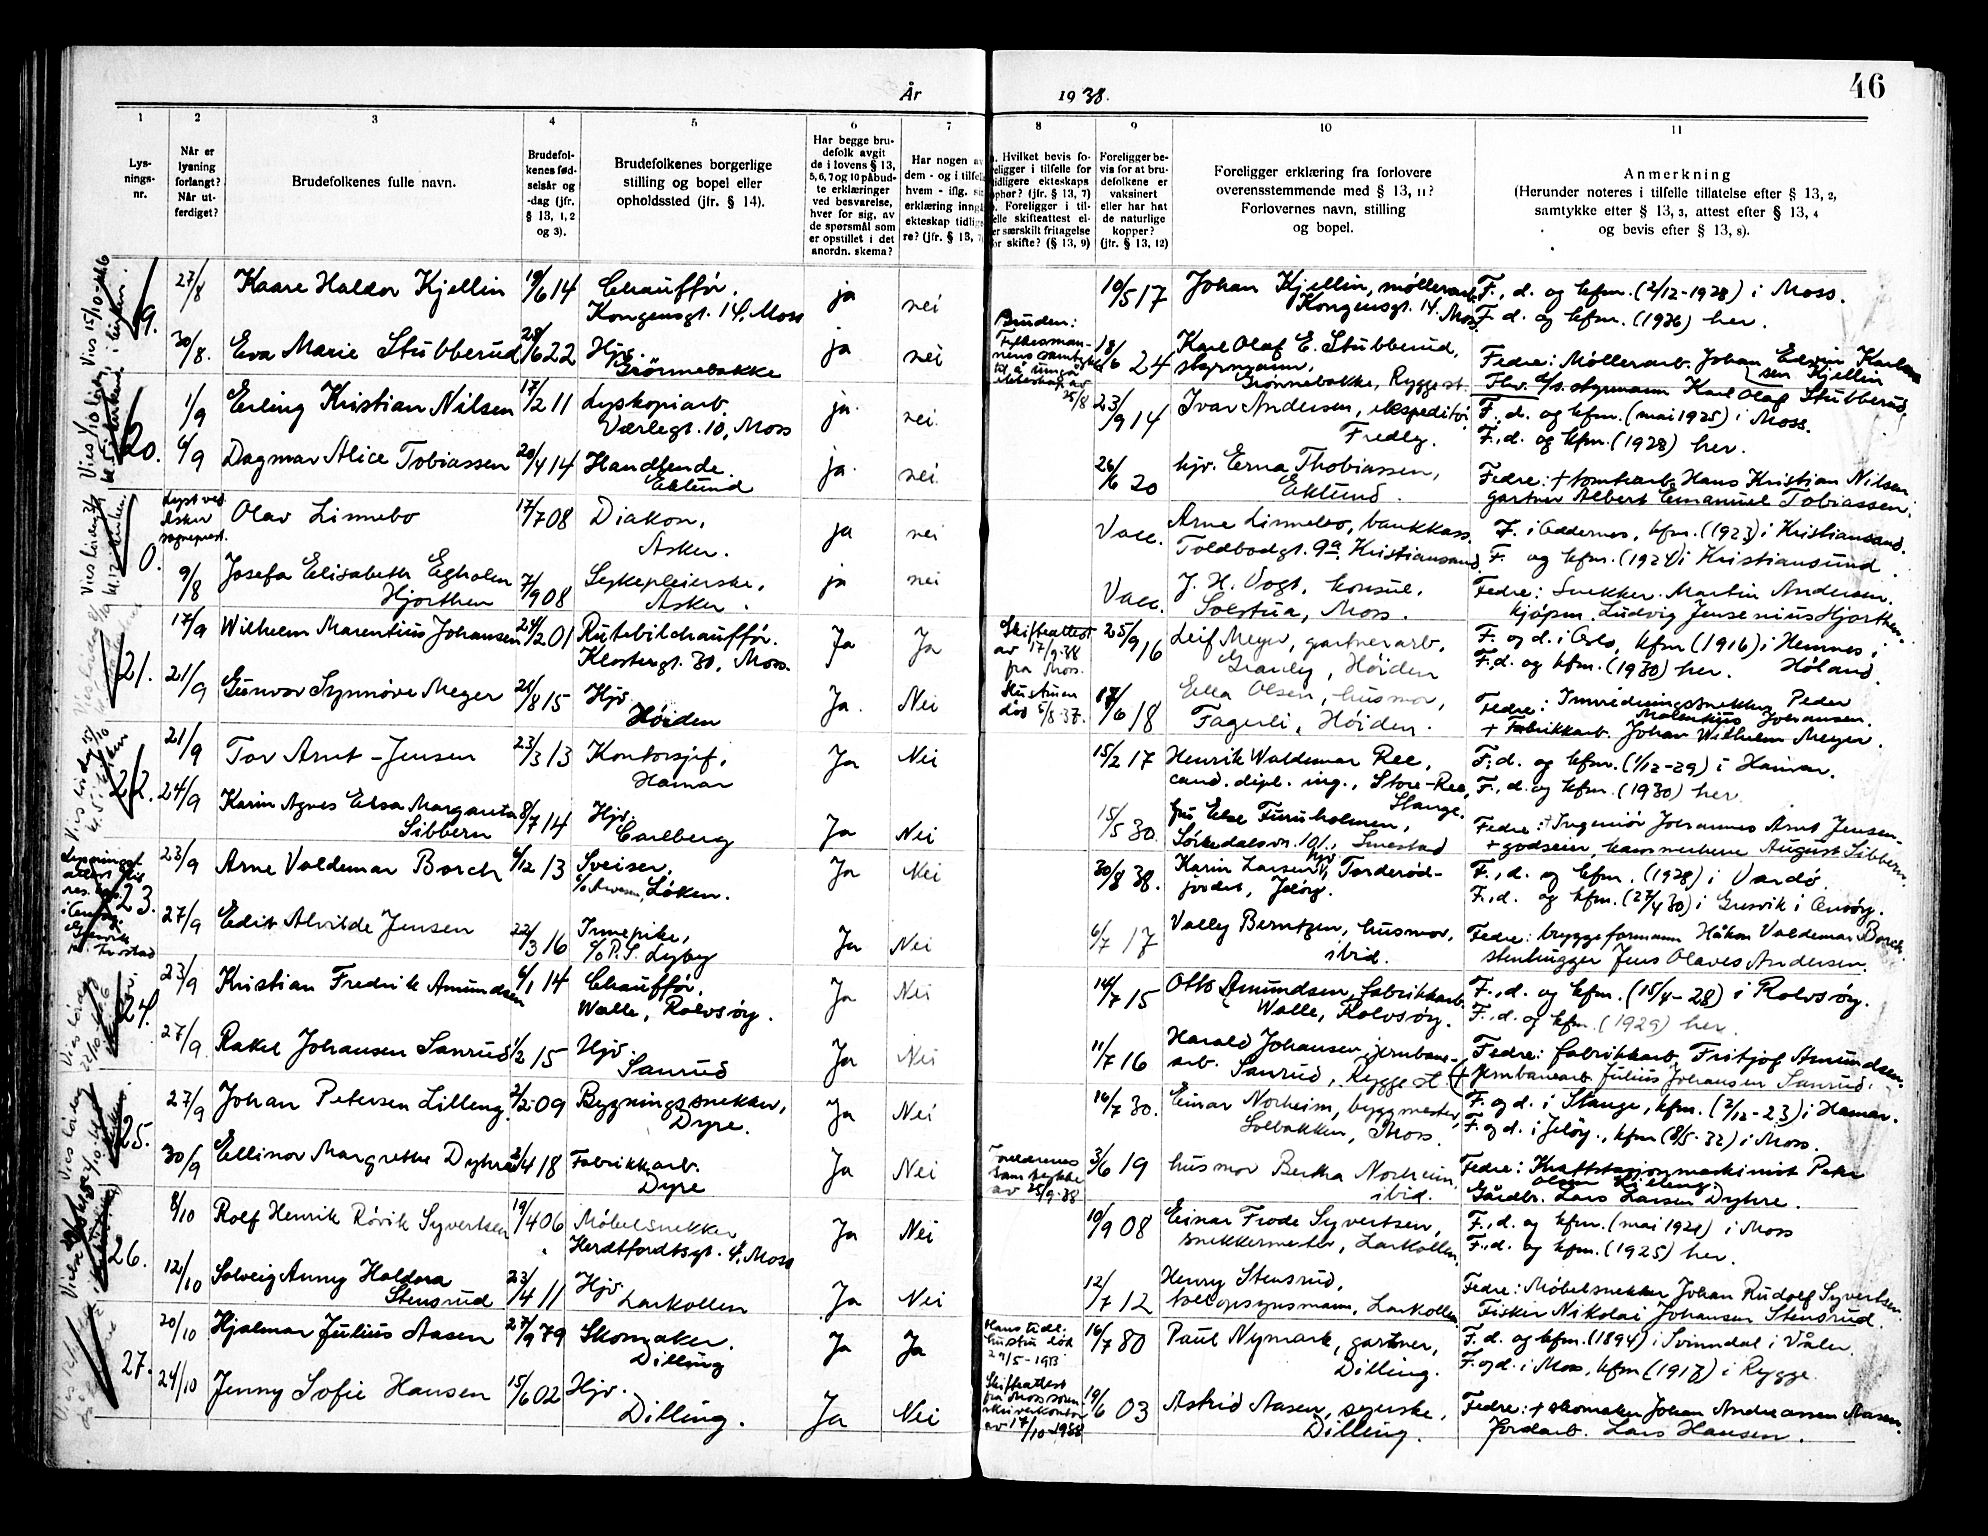 46
År 1938.
1 2 3 4 5 6 7 8 9 10 11
Lys-
nings-
nr.
Når er
lysning
forlangt?
Når ut-
ferdiget?
Brudefolkenes fulle navn.
Brudefol-
kenes fød-
selsår og
-dag (jfr.
§ 13, 1, 2
og 3).
Brudefolkenes borgerlige
stilling og bopel eller
opholdssted (jfr. § 14).
Har begge bru-
defolk avgit
de i lovens § 13,
5, 6, 7 og 10 påbud-
te erklæringer
ved besvarelse,
hver for sig, av
de spørsmål som
er opstillet i det
anordn. skema?
Har nogen av
dem - og i tilfelle
hvem - iflg. sin
erklæring inngått
ekteskap tidlige-
re? (jfr. § 13, 7)
. Hvilket bevis fo-
religger i tilfelle for
tidligere ekteskaps
ophør? (jfr. § 13, 7)
. Foreligger i til-
felle skifteattest el-
er særskilt fritagelse
for skifte? (§ 13, 9)
Foreligger be-
vis for at bru-
defolkene er
vaksinert
eller har hat
de naturlige
kopper?
(jfr. § 13, 12)
Foreligger erklæring fra forlovere
overensstemmende med § 13, 11?
Forlovernes navn, stilling
og bopel.
Anmerkning
(Herunder noteres i tilfelle tillatelse efter § 13, 2,
samtykke efter § 13, 3, attest efter § 13, 4
og bevis efter § 13, 8).
19.
27/8 Kaare Haldor Kjellin 19/6 14 Chauffør. ja nei 10/5 17 Johan Kjellin, møllerarb. F., d. og kfm. (2/12-1928) i Moss.
Kongensgt. 14, Moss Kongensgt. 14, Moss. F. d. og kfm. (1936) her.
30/8. Eva Marie Stubberud 28/6 22 Hjv. ja nei Bruden: 18/6 24 Karl Olaf E. Stubberud, Fedre: Møllerarb. Johan Edvin Karl
Grønnebakke Fylkesman- styrmann, sen Kjellin
nens samtykke Grønnebakke, Rygge st. styrmann Karl Olaf Stubberud.
til å inngå
ekteskap av
25/8
20.
1/9 Erling Kristian Nilsen 17/2 11 Lyskopiarb. ja. nei. 23/9 14 Ivar Andersen, ekspeditør F. d. og kfm. (mai 1925) i Moss.
Værlegt. 10, Moss Fredly. F., d. og kfm. (1928) her.
6/9 Dagmar Alice Tobiassen 20/4 14 Handlende. ja. nei. 26/6 20 hjv. Erna Thobiassen, Fedre: + tomtearb. Hans Kristian Nilsen,
Eklund Eklund. gartner Albert Emanuel Tobiassen.
0.
Lyst ved
Asker
sogneprest.
Olav Linnebo 17/7 08 Diakon, ja nei Vacc. Arne Linnebo, bankkass. F. i Oddernes, kfm. (1923) i Kristiansand.
Asker. Toldbodgt. 9a Kristiansand F. og kfm. (1924) i Kristiansund.
9/8 Josefa Elisabeth Egholm 7/9 08 Sykepleierske, ja nei Vacc. J. H. Vogt, konsul, Fedre: Snekker Martin Andersen,
Hjorthen Asker. Solstua, Moss. kjøpm. Ludvig Jensenius Hjorthen.
21.
17/9 Wilhelm Marentius Johansen 24/2 01 Rutebilchauffør. Ja Ja Skifteattest 25/9 16 Leif Meyer, gartnerarb. F. og d. i Oslo, kfm (1916) i Hemnes i
Klostergt. 30, Moss. av 17/9-38 Granly, Høiden Høland.
fra Moss. F., d. og kfm. (1930) her.
21/9 Gunvor Synnøve Meyer 21/8 15 Hjv. Ja. Nei Hustruen 17/6 18 Ella Olsen, husmor, Fedre: Innredningssnekker Peder
Høiden død 5/8-37. Fagerli, Høiden. Malentius Johansen.
+ Fabrikkarb. Johan Wilhelm Meyer.
22.
21/9 Tor Arnt-Jensen 23/3 13 Kontorsjef, Ja Nei 15/2 17 Henrik Waldemar Ree, F., d. og kfm. (1/12-29) i Hamar.
Hamar cand. dipl. ing., Store-Ree, F., d. og kfm. (1930) her.
Stange.
24/9 Karin Agnes Elsa Margareta 8/7 14 Hjv. Ja Nei 15/5 30. fru Else Furuholmen, Fedre: + Ingeniør Johannes Arnt Jensen.
Sibbern Carlberg Sørkedalsvn. 101, Smestad + godseier, kammerherre August Sibbern.
23.
23/9 Arne Valdemar Borch 6/12 13 Sveiser. Ja Nei 30/8 38. Karin Larsen, hjv Torderød- F., d. og kfm. (1928) i Vardø.
Løken. jordet, Jeløy. F., d. og kfm. (27/4 30) i Gresvik i Onsøy.
27/9 Edit Alvilde Jensen 22/3 16 Innepike, Ja Nei 6/7 17 Vally Berntzen, husmor, Fedre: bryggeformann Håkon Valdemar Borch.
c/o P. S. Lyby ibid. stenhugger Jens Olaves Andersen.
24.
23/9 Kristian Fredrik Amundsen 6/1 14 Chauffør, Ja Nei 14/7 15 Otto Amundsen, fabrikkarb. F., d. og kfm. (15/4-28) i Rolvsøy.
Walle, Rolvsøy. Walle, Rolvsøy. F., d. og kfm. (1929) her.
27/9 Rakel Johansen Sanrud 1/2 15 Hjv. Ja Nei 11/7 16 Harald Johansen, jernbane- Fedre: fabrikkarb. Fritjof Amundsen.
Sanrud arb. Sanrud, Rygge st. + jernbanearb. Julius Johansen Sanrud.
25.
27/9 Johan Petersen Lilleng 2/2 09 Bygningssnekker, Ja Nei 16/7 30. Einar Norheim, byggmester, F. og d. i Stange, kfm. (2/12-23) i Hamar.
Dyre. Solbakken, Moss. F. og d. i Jeløy., kfm (8/5-32) i Moss.
30/9 Ellinor Margrethe Dyhre 2/4 18 Fabrikkarb. Ja Nei Foreldrenes 3/6 19 husmor Bertha Norheim, Fedre: Kraftstasjonsmaskinist Peter
Dyre samtykke ibid. Olsen Lilleng
av 25/9-38 Gårdbr. Lars Larsen Dyhre.
26.
8/10 Rolf Henrik Rövik Syvertsen 19/4 06 Møbelsnekker Ja Nei 10/9 08 Einar Frode Syvertsen, F., d. og kfm. (mai 1921) i Moss
Herdtfordtsgt. 4, Moss snekkermester, Larkollen, F., d. og kfm. (1925) her.
12/10 Solveig Anny Haldora 23/4 11 Hjv Ja Nei 12/7 12 Henry Stensrud, Fedre: Møbelsnekker Johan Rudolf Syvertsen
Stensrud Larkollen tollopsynsmann, Larkollen Fisker Nikolai Johansen Stensrud.
27.
20/10 Hjalmar Julius Aasen 27/9 79 Skomaker. Ja Ja Hans tidl. 16/7 80 Paul Nymark, gartner, F. d. og kfm. (1894) i Svinndal i Våler.
Dilling hustru død Dilling. F. og d. i Moss, kfm (1917) i Rygge.
29/5-1913
24/10 Jenny Sofie Hansen 15/6 02 Hjv. Ja Nei Skifteattest 19/6 03 Astrid Aasen, syerske, Fedre: + skomaker Johan Andreassen Aasen.
Dilling. fra Moss soren- Dilling. Jordarb. Lars Hansen.
skriverkontor
av 17/10-1938